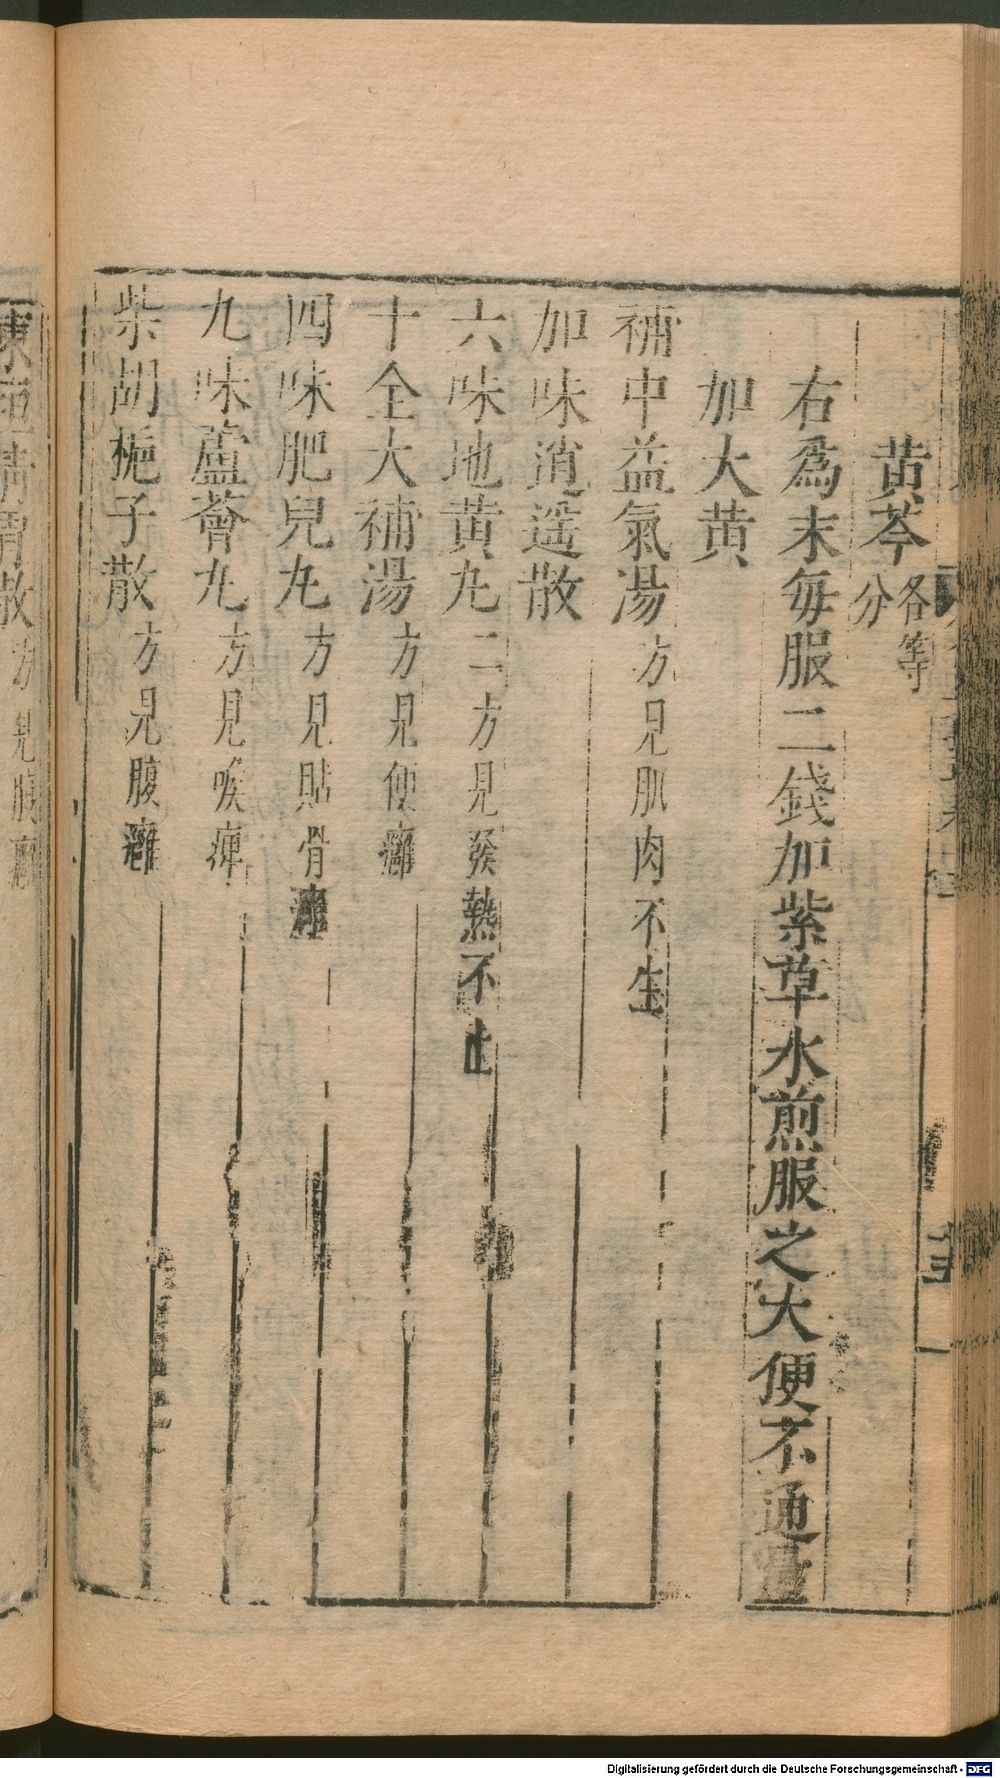 黄芩各等分
右爲末每服二錢加紫草水煎服之大便不通量
加大黄
補中益氣湯方見肌肉不生
加味逍遥散
六味地黄丸二方見發熱不止
十全大補湯方見便癰
四味肥兒丸方見貼骨癰
九味蘆薈丸方見喉痺
柴胡梔子散方見腹癰
清胃散方見腹癰
Digitalisierung gefördert durch die Deutsche Forschungsgemeinschaft - DFG